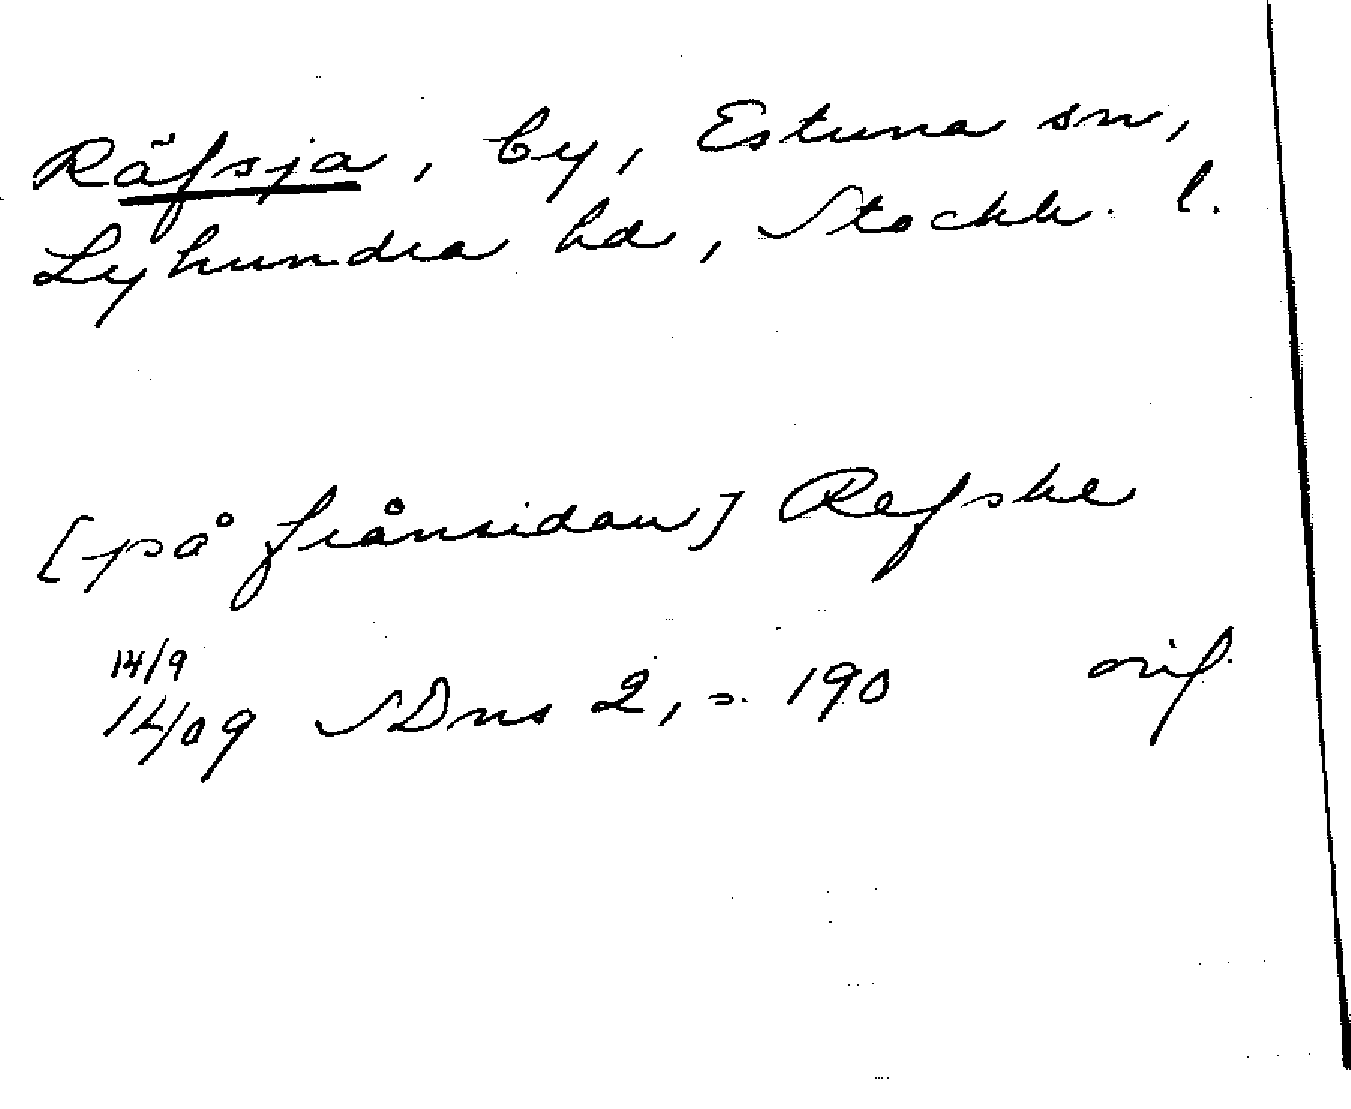 Räfsja, by, Estuna sn,
Lyhundra hd, Stockh. l.
[på frånsidan] Refske
14/9
1409 SDns 2, s. 190 orig.